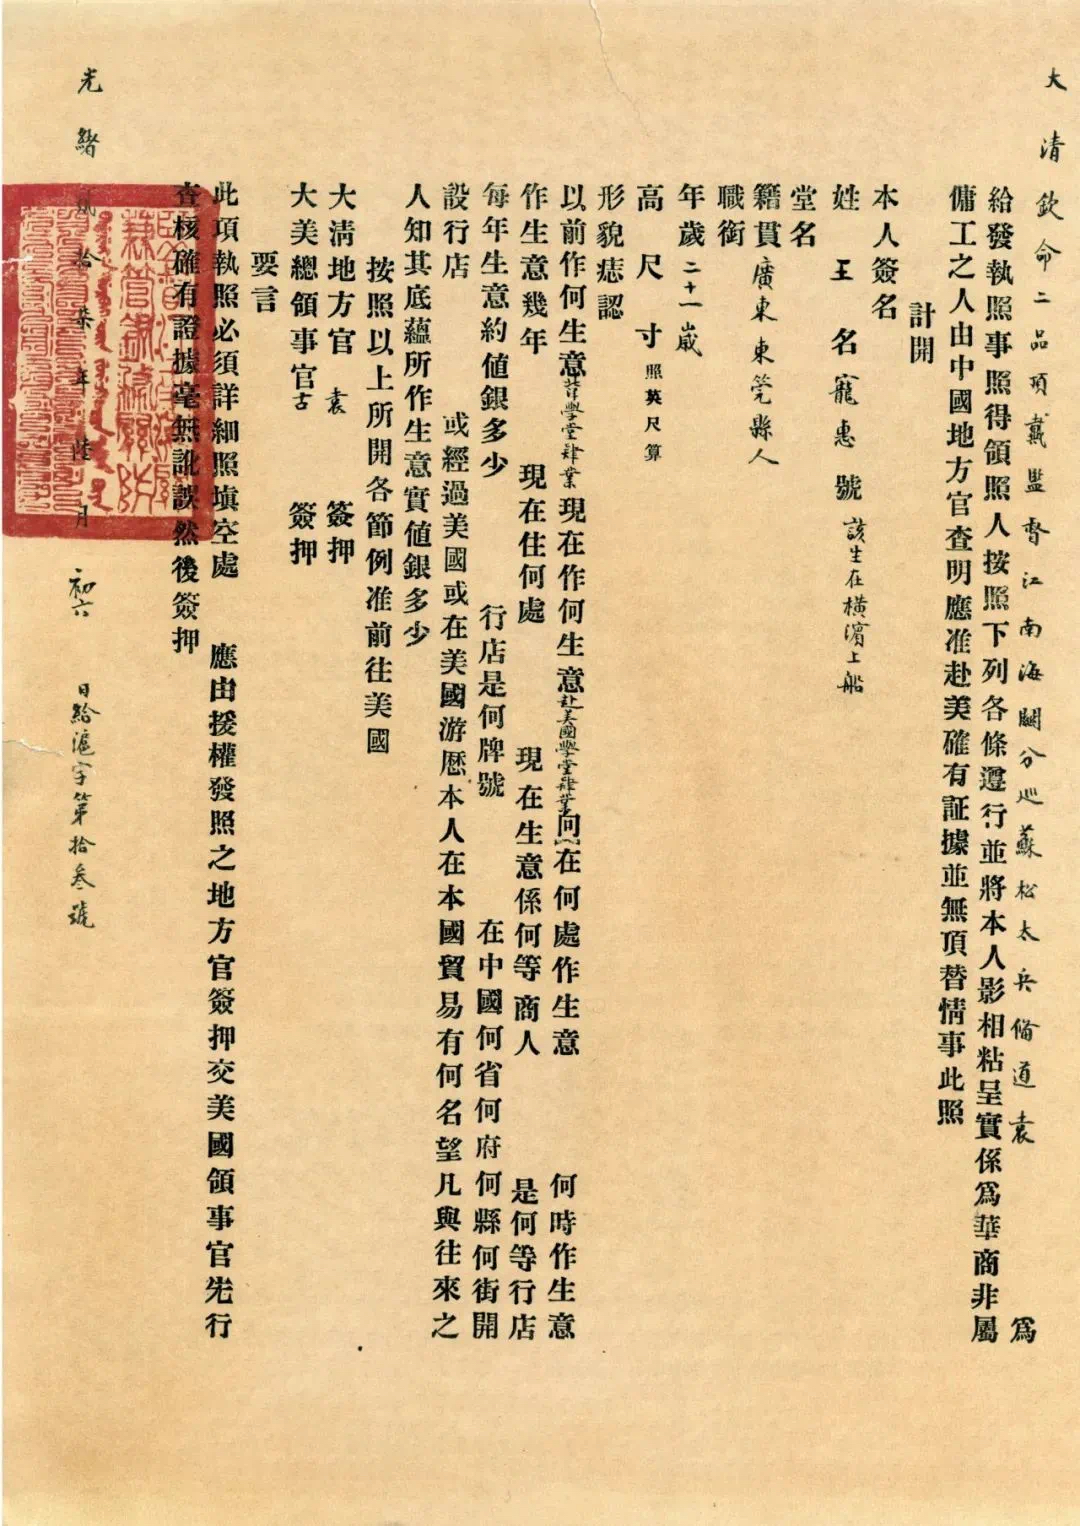 大清欽命二品頂戴監督江南海關分巡蘇松太兵備道袁 爲
給發執照事照得領照人按照下列各條遵行並將本人影相粘呈實係爲華商非屬
傭工之人由中國地方官查明應准赴美確有証據並無頂替情事此照
計開
本人簽名
姓 王 名 寵惠 號 該生在橫濱上船
堂名
籍貫 廣東東莞縣人
職銜
年歲 二十一歲
高 尺 寸 照英尺算
形貌痣認
以前作何生意 學堂肄業 現在作何生意 赴美國學堂肄業 向在何處作生意 何時作生意
作生意幾年 現在住何處 現在生意係何等商人 是何等行店
每年生意約値銀多少 行店是何牌號 在中國何省何府何縣何街開
設行店 或經過美國或在美國游歷本人在本國貿易有何名望凡與往來之
人知其底蘊所作生意實値銀多少
按照以上所開各節例准前往美國
大清地方官 袁 簽押
大美總領事官 古 簽押
要言
此項執照必須詳細照塡空處 應由援權發照之地方官簽押交美國領事官先行
查核確有證據毫無訛誤然後簽押
光緒貳拾柒年陸月初六日給滬字第拾叁號